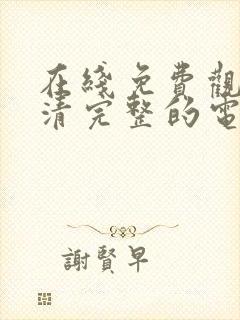 在綫免費觀
清完整的電
謝賢早